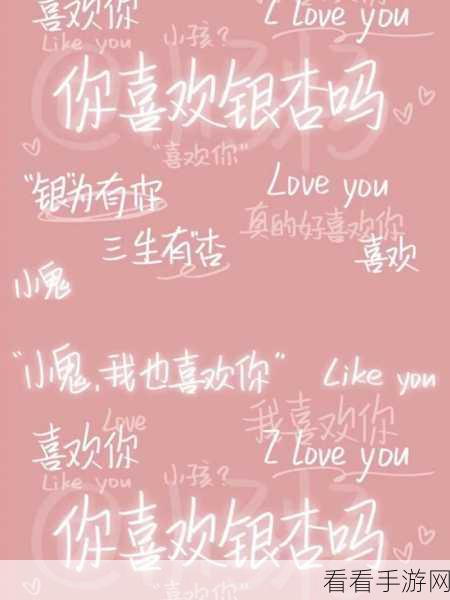 喜欢你 I Love you
Like you 小孩?
你喜欢银杏吗
"喜欢你"
"银"为有你 Love you
真的好喜欢你
三生有"杏" 喜欢
小鬼
"小鬼,我也喜欢你" Like you
Love 我喜欢你
喜欢你 I Love you
Like you 小孩?
你喜欢银杏吗
"喜欢你"
看看手游网